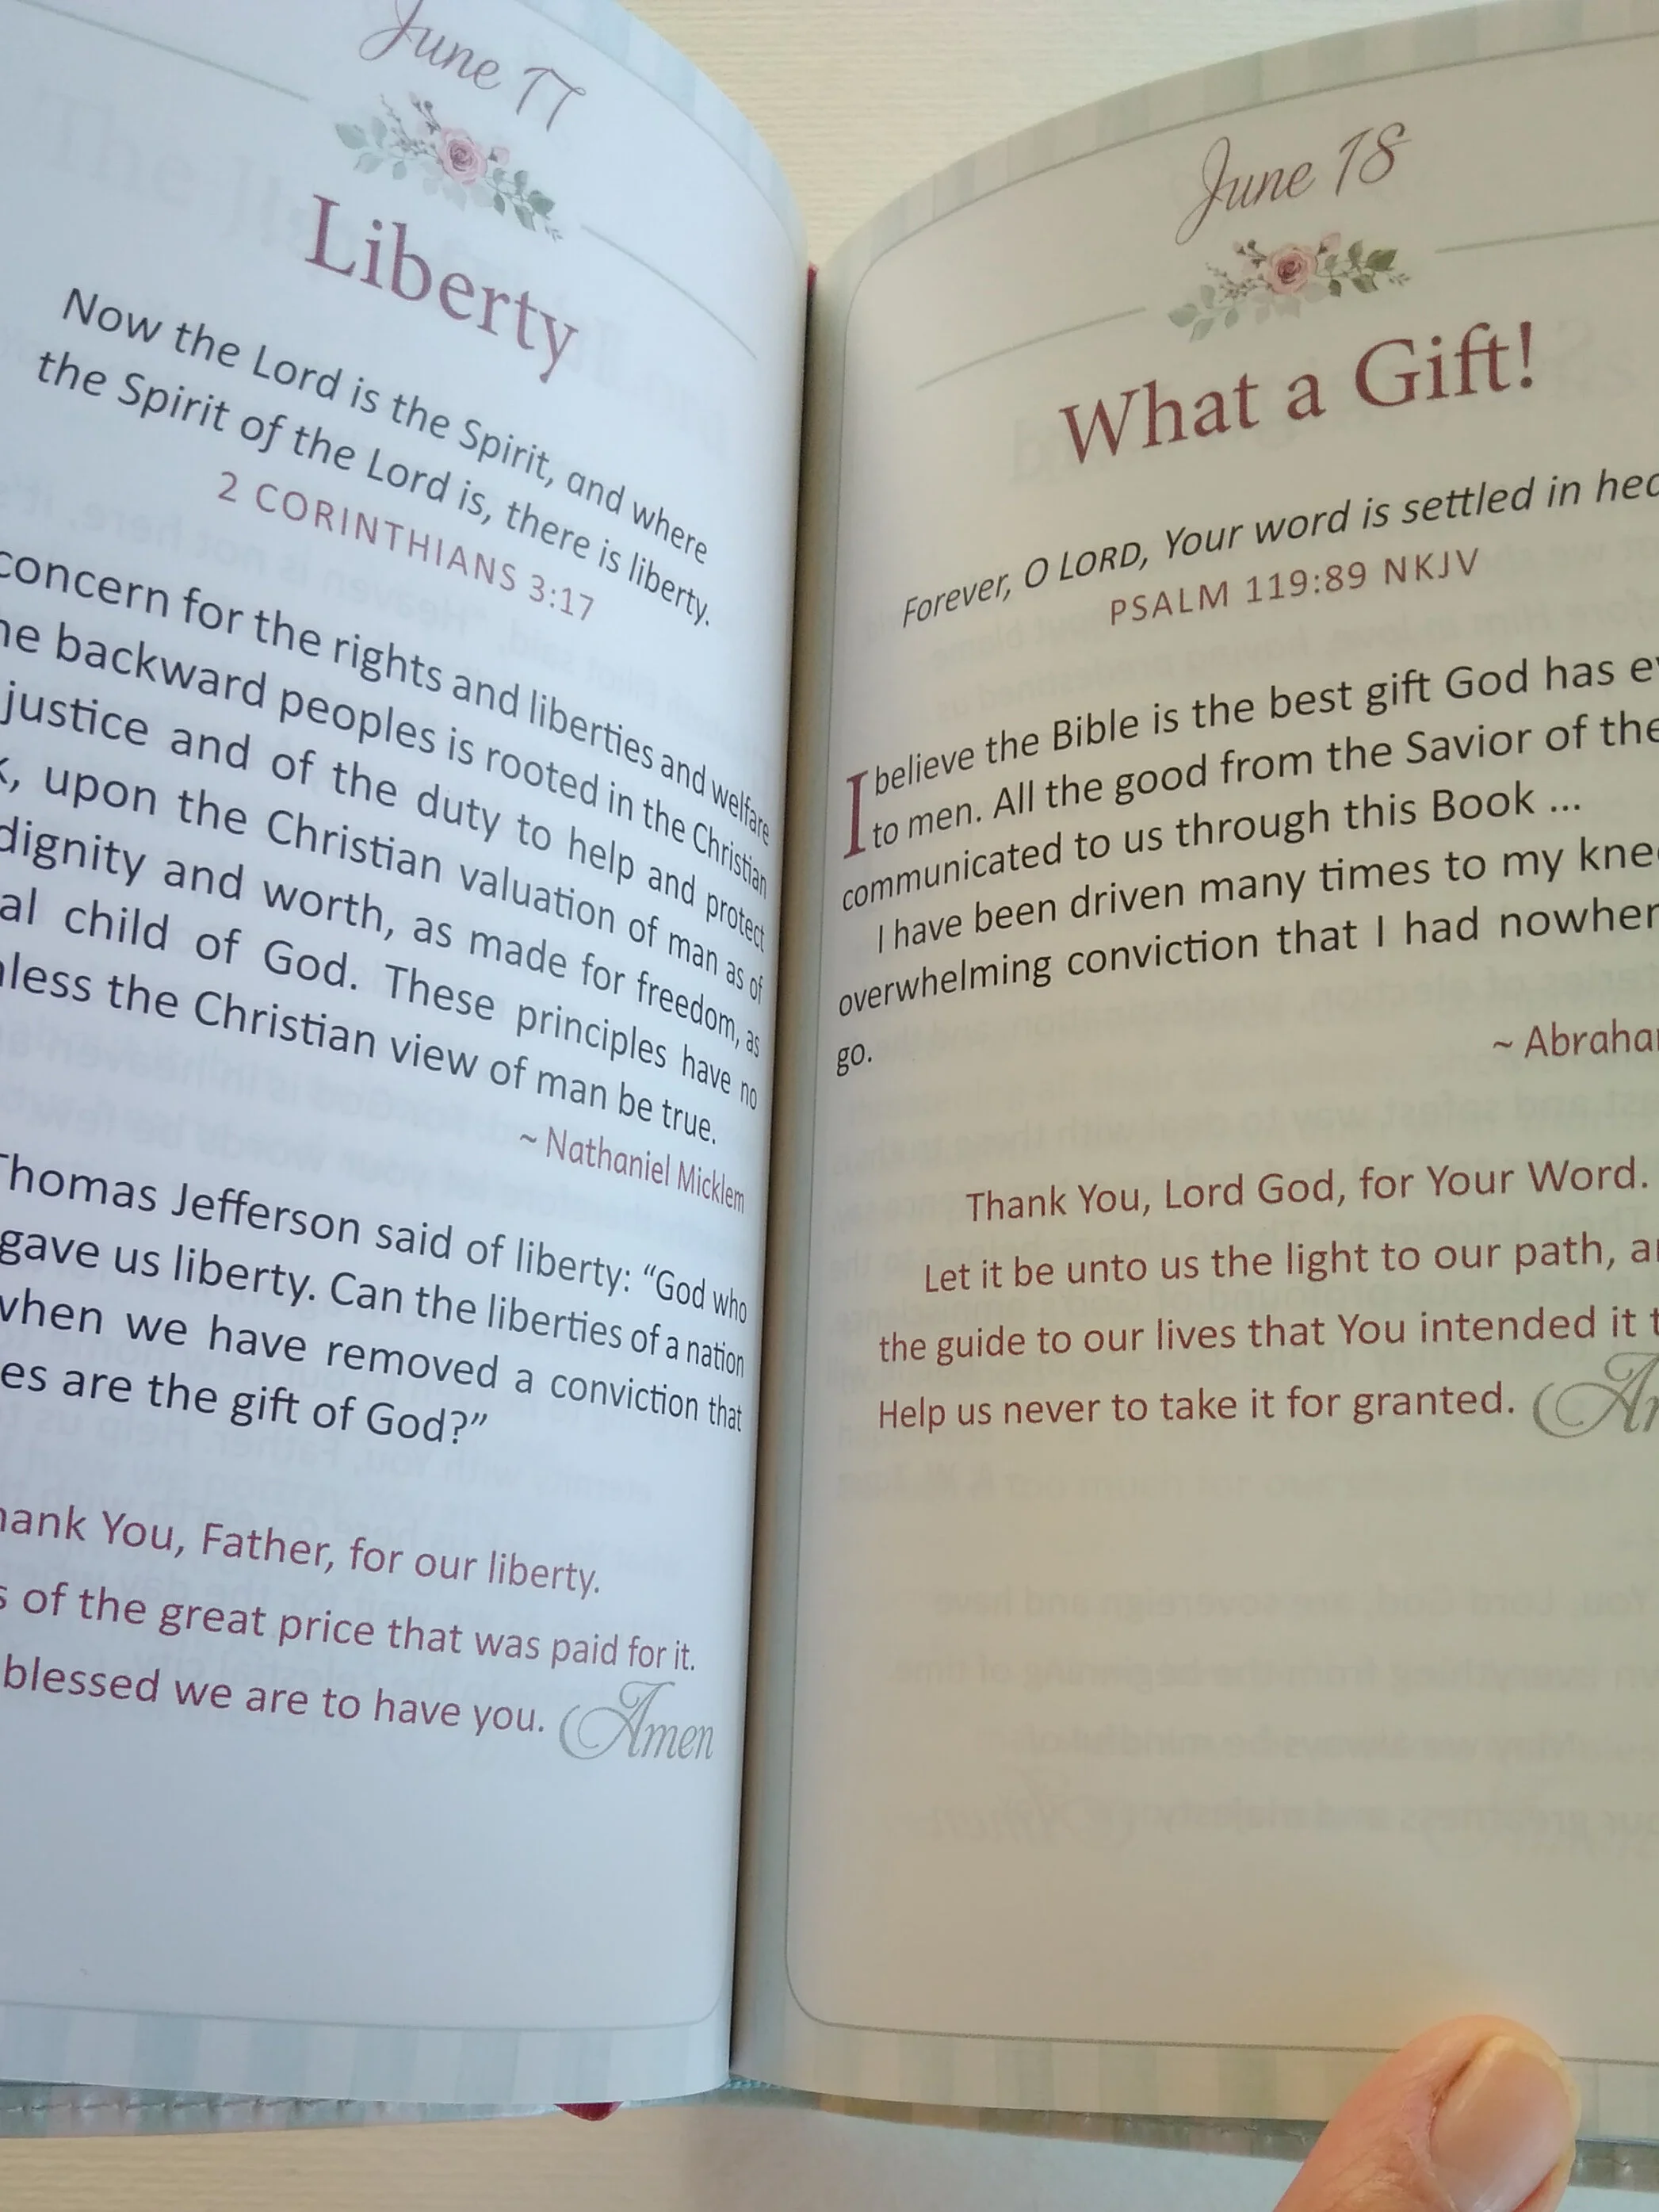 June 17
Liberty
Now the Lord is the Spirit, and where
the Spirit of the Lord is, there is liberty.
2 CORINTHIANS 3:17
concern for the rights and liberties and welfare
backward peoples is rooted in the Christian
justice and of the duty to help and protect
upon the Christian valuation of man as of
dignity and worth, as made for freedom, as
child of God. These principles have no
the Christian view of man be true.
~ Nathaniel Micklem
Thomas Jefferson said of liberty: “God who
gave us liberty. Can the liberties of a nation
when we have removed a conviction that
are the gift of God?”
You, Father, for our liberty.
of the great price that was paid for it.
blessed we are to have you. Amen
June 18
What a Gift!
Forever, O LORD, Your word is settled in
PSALM 119:89 NKJV
I believe the Bible is the best gift God has
to men. All the good from the Savior of the
communicated to us through this Book ...
I have been driven many times to my
overwhelming conviction that I had
go.
~
Thank You, Lord God, for Your Word.
Let it be unto us the light to our path,
the guide to our lives that You intended it
Help us never to take it for granted.